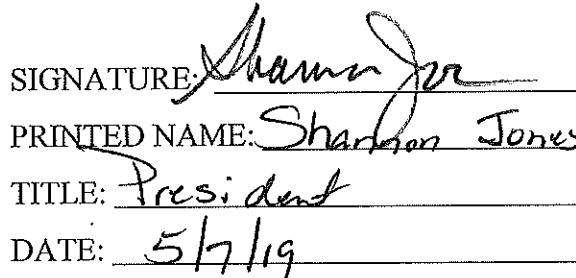 SIGNATURE: Shannon Jones
PRINTED NAME: Shannon Jones
TITLE: President
DATE: 5/7/19